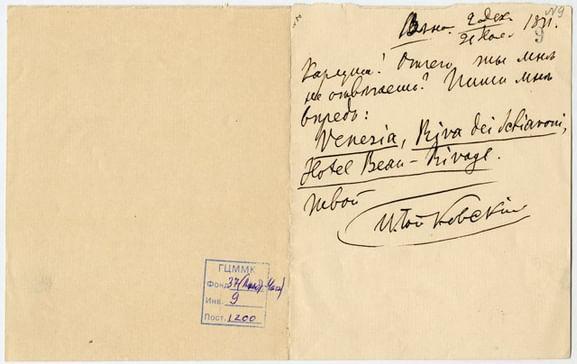 №9
9
Вена. 2 дек. 1877.
Карлуша! Отчего ты мнѣ
не отвѣчаешь? Пиши мнѣ
впредь:
Venezia, Riva dei Schiavoni,
Hotel Beau-Rivage.
твой
П. Чайковскій
ГЦММК
Фонд 37
Инв. 9
Пост. 1200